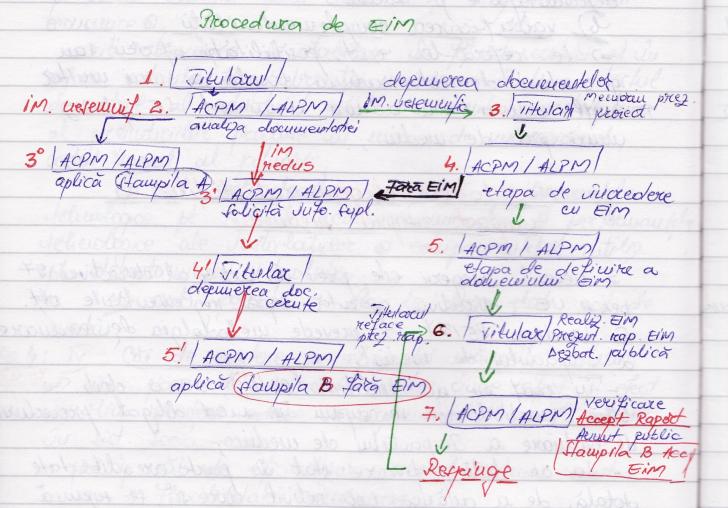 Procedura de EiM
1. Titularul depunerea documentelor
im. nesemnif. 2. ACPM / ALPM im. nesemnific 3. Titular Memoriu prez. proiect
analiza documentatiei
3° ACPM / ALPM
aplică Stampila A
im redus
3' ACPM / ALPM
solicită info. supl.
fără EiM
4. ACPM / ALPM
etapa de încredere
cu EiM
4' Titular
depunerea doc.
cerute
5. ACPM / ALPM
etapa de definire a
domeniului EiM
5' ACPM / ALPM
aplică Stampila B fără EiM
Titularul
reface
prez. rap.
6. Titular Realiz. EiM
Prezint. rap. EiM
Dezbat. publică
7. ACPM / ALPM verificare
Accept Raport
Anunt public
Stampila B Acc
EiM
Respinge